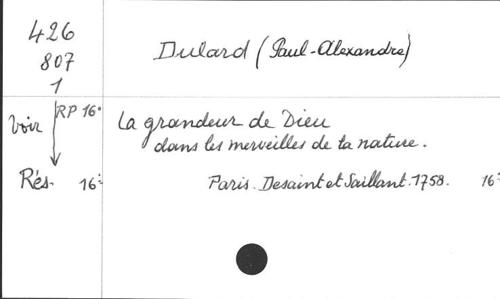 426
807
1
Dulard (Paul-Alexandre)
Voir
RP 16°
La grandeur de Dieu
dans les merveilles de la nature.
Rés. 16°
Paris. Desaint et Saillant. 1758. 16°